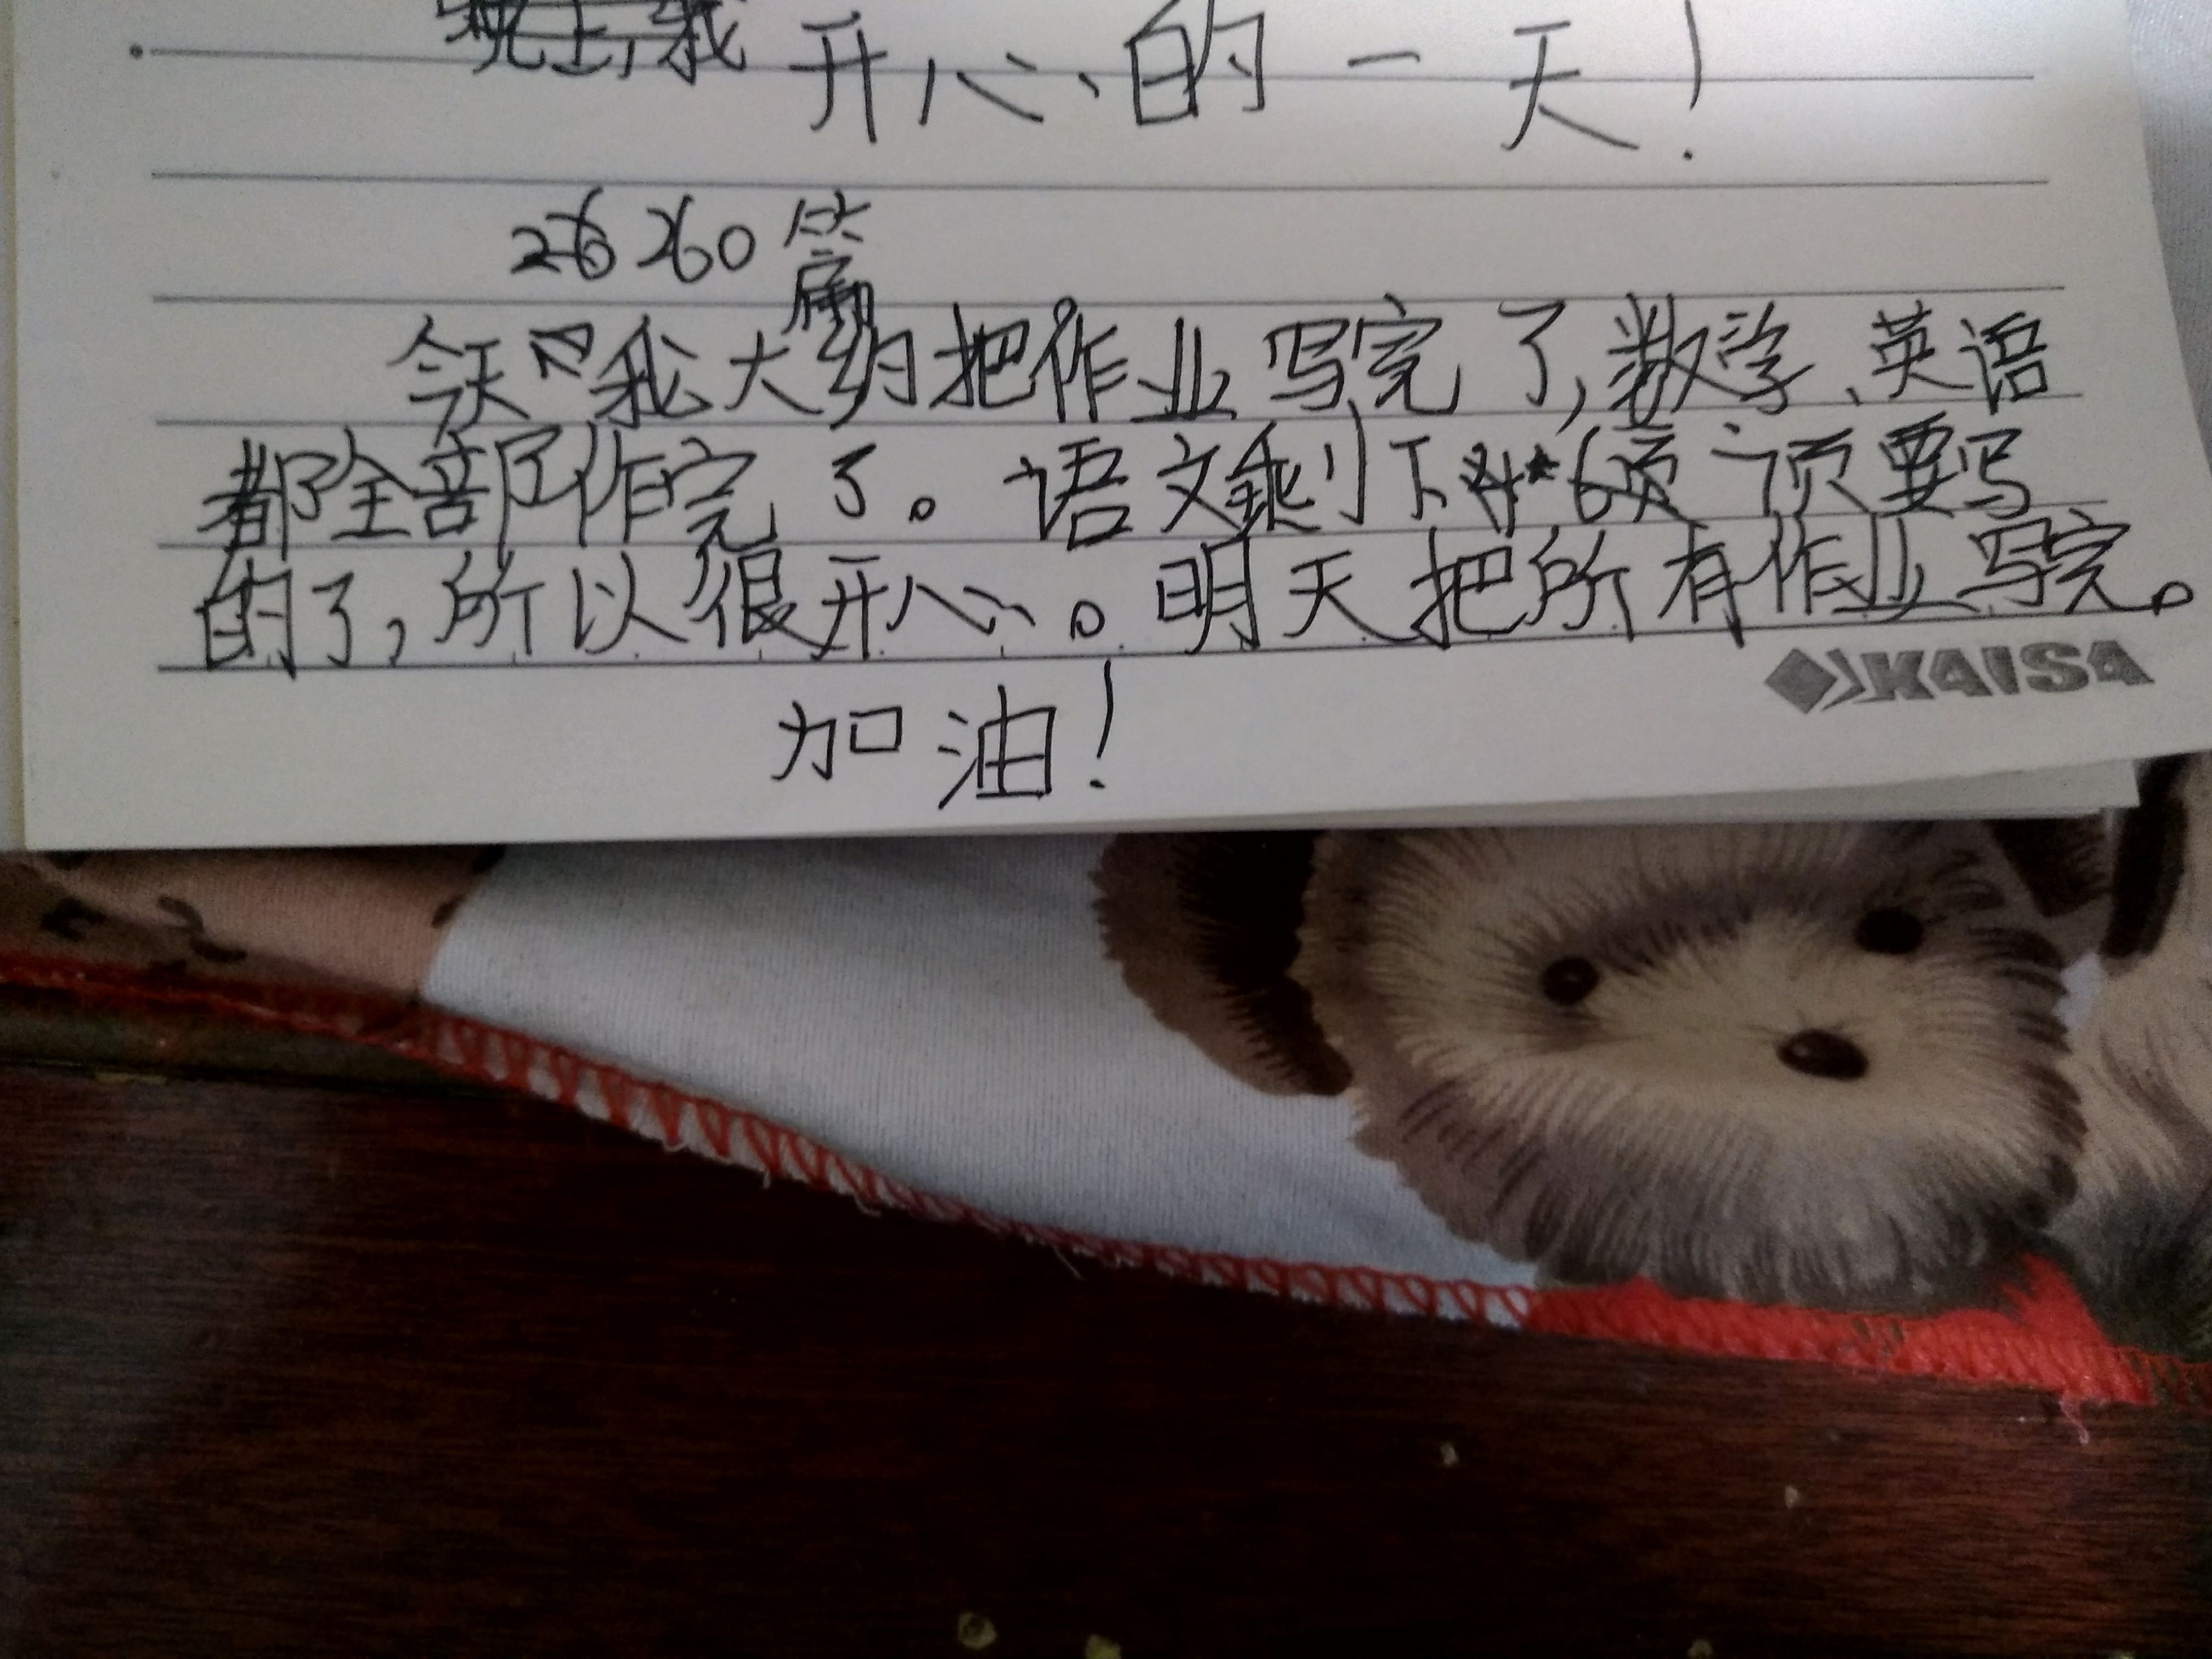 晚上,我 开心的一天!
26 260 篇
今天 我大约把作业写完了,数学、英语
都全部作完了。语文剩下 6页 页要写
的了,所以很开心。明天把所有作业写完。
KAISA
加油!